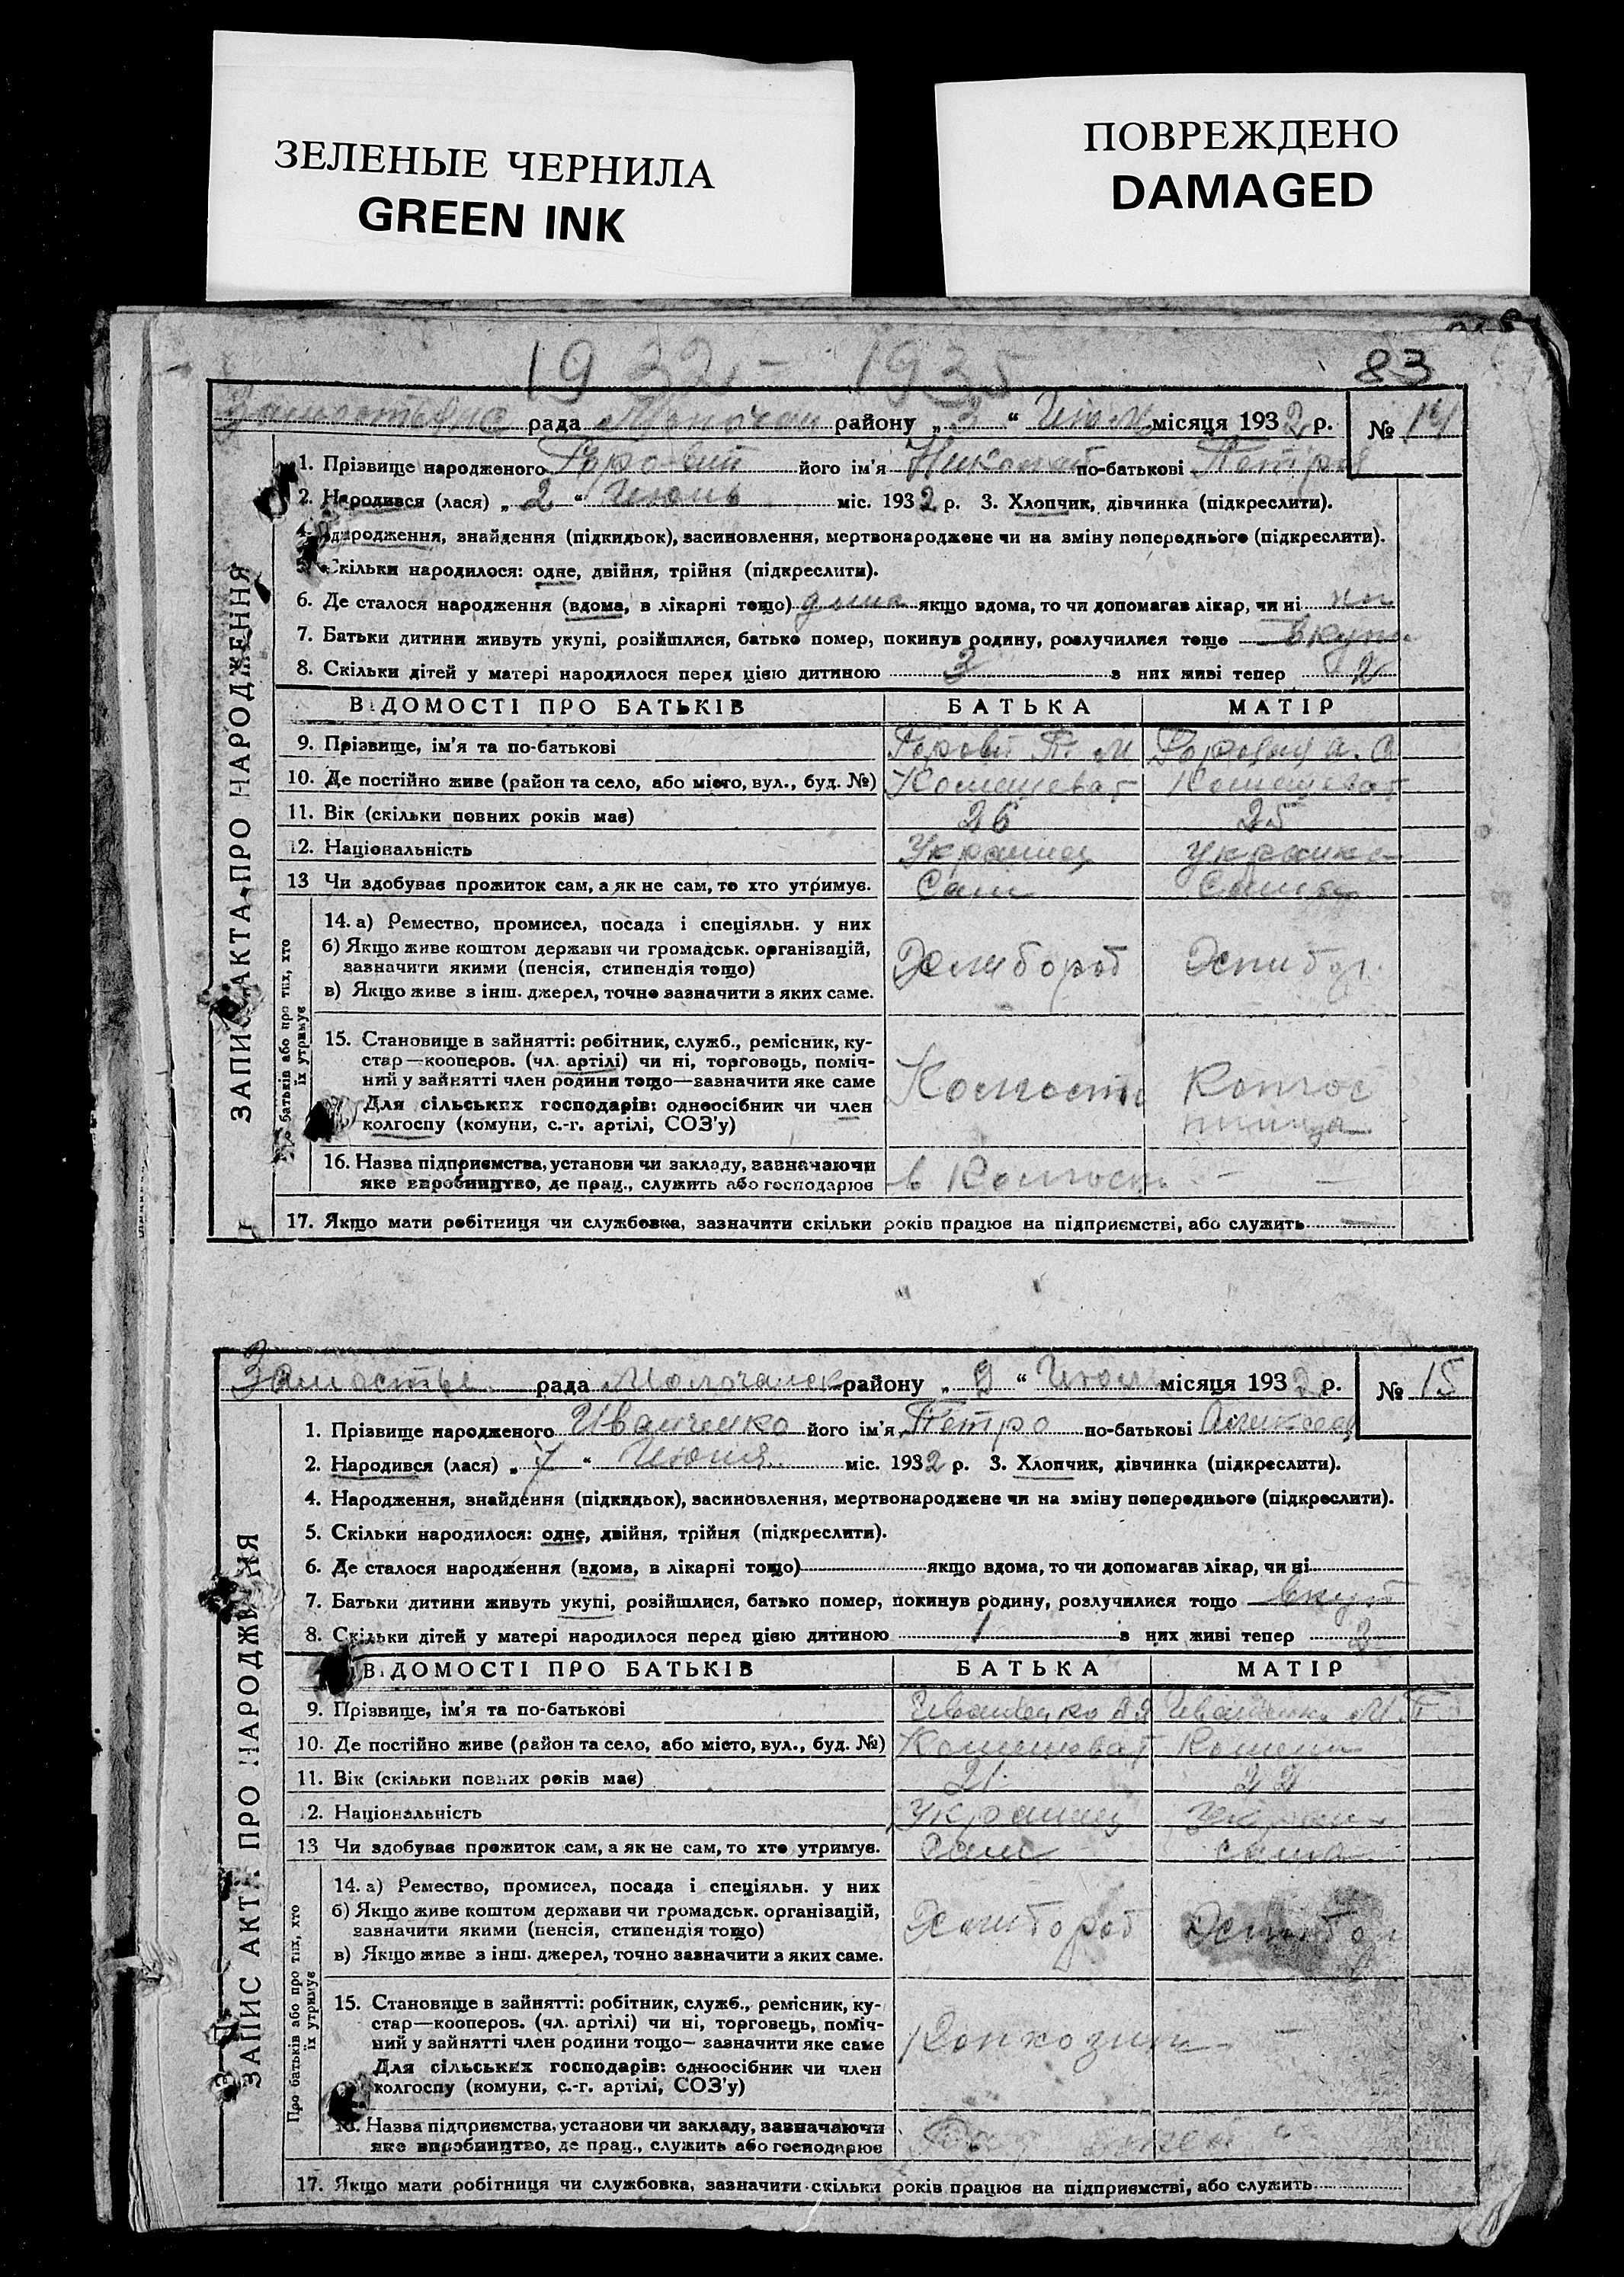 ЗЕЛЕНЫЕ ЧЕРНИЛА
GREEN INK
ПОВРЕЖДЕНО
DAMAGED
1932 - 1935
83
рада районну „3“ місяця 1932 р. № 14
1. Прізвище народженого його ім'я Николай по-батькові Петров
2. Народився (лася) „2“ Июнь міс. 1932 р. 3. Хлопчик, дівчинка (підкреслити).
4. народження, знайдення (підкидьок), засиновлення, мертвонароджене чи на зміну попереднього (підкреслити).
Скільки народилося: одне, двійня, трійня (підкреслити).
6. Де сталося народження (вдома, в лікарні тощо) дома якщо вдома, то чи допомагав лікар, чи ні
7. Батьки дитини живуть укупі, розійшлися, батько помер, покинув родину, розлучилися тощо вкупи
8. Скільки дітей у матері народилося перед цією дитиною 3 з них живі тепер 2
ВІДОМОСТІ ПРО БАТЬКІВ БАТЬКА МАТІР
9. Прізвище, ім'я та по-батькові
10. Де постійно живе (район та село, або місто, вул., буд. №)
11. Вік (скільки повних років має) 26 25
12. Національність Украинец Украинка
13 Чи здобуває прожиток сам, а як не сам, то хто утримує. Сам Сама
14. а) Ремество, промисел, посада і спеціяльн. у них
б) Якщо живе коштом держави чи громадськ. організацій,
зазначити якими (пенсія, стипендія тощо)
в) Якщо живе з інш. джерел, точно зазначити з яких саме.
15. Становище в зайнятті: робітник, служб., ремісник, ку-
стар—кооперов. (чл. артілі) чи ні, торговець, поміч-
ний у зайнятті член родини тощо—зазначити яке саме
Для сільських господарів: одноосібник чи член
колгоспу (комуни, с.-г. артілі, СОЗ'у)
16. Назва підприємства, установи чи закладу, зазначаючи
яке виробництво, де прац., служить або господарює
17. Якщо мати робітниця чи службовка, зазначити скільки років працює на підприємстві, або служить
ЗАПИС АКТА ПРО НАРОДЖЕННЯ
батьків або про тих, хто
їх утримує
рада району місяця 1932 р. № 15
1. Прізвище народженого Иванченко його ім'я Петро по-батькові
2. Народився (лася) „7“ Июня міс. 1932 р. 3. Хлопчик, дівчинка (підкреслити).
4. Народження, знайдення (підкидьок), засиновлення, мертвонароджене чи на зміну попереднього (підкреслити).
5. Скільки народилося: одне, двійня, трійня (підкреслити).
6. Де сталося народження (вдома, в лікарні тощо) якщо вдома, то чи допомагав лікар, чи ні
7. Батьки дитини живуть укупі, розійшлися, батько помер, покинув родину, розлучилися тощо
8. Скільки дітей у матері народилося перед цією дитиною 1 з них живі тепер 2
ВІДОМОСТІ ПРО БАТЬКІВ БАТЬКА МАТІР
9. Прізвище, ім'я та по-батькові
10. Де постійно живе (район та село, або місто, вул., буд. №)
11. Вік (скільки повних років має) 21 22
12. Національність Украинец
13 Чи здобуває прожиток сам, а як не сам, то хто утримує. Сам сама
14. а) Ремество, промисел, посада і спеціяльн. у них
б) Якщо живе коштом держави чи громадськ. організацій,
зазначити якими (пенсія, стипендія тощо)
в) Якщо живе з інш. джерел, точно зазначити з яких саме.
15. Становище в зайнятті: робітник, служб., ремісник, ку-
стар—кооперов. (чл. артілі) чи ні, торговець, поміч-
ний у зайнятті член родини тощо— зазначити яке саме
Для сільських господарів: одноосібник чи член
колгоспу (комуни, с.-г. артілі, СОЗ'у)
Назва підприємства, установи чи закладу, зазначаючи
яке виробництво, де прац., служить або господарює
17. Якщо мати робітниця чи службовка, зазначити скільки років працює на підприємстві, або служить
ЗАПИС АКТА ПРО НАРОДЖЕННЯ
Про батьків або про тих, хто
їх утримує